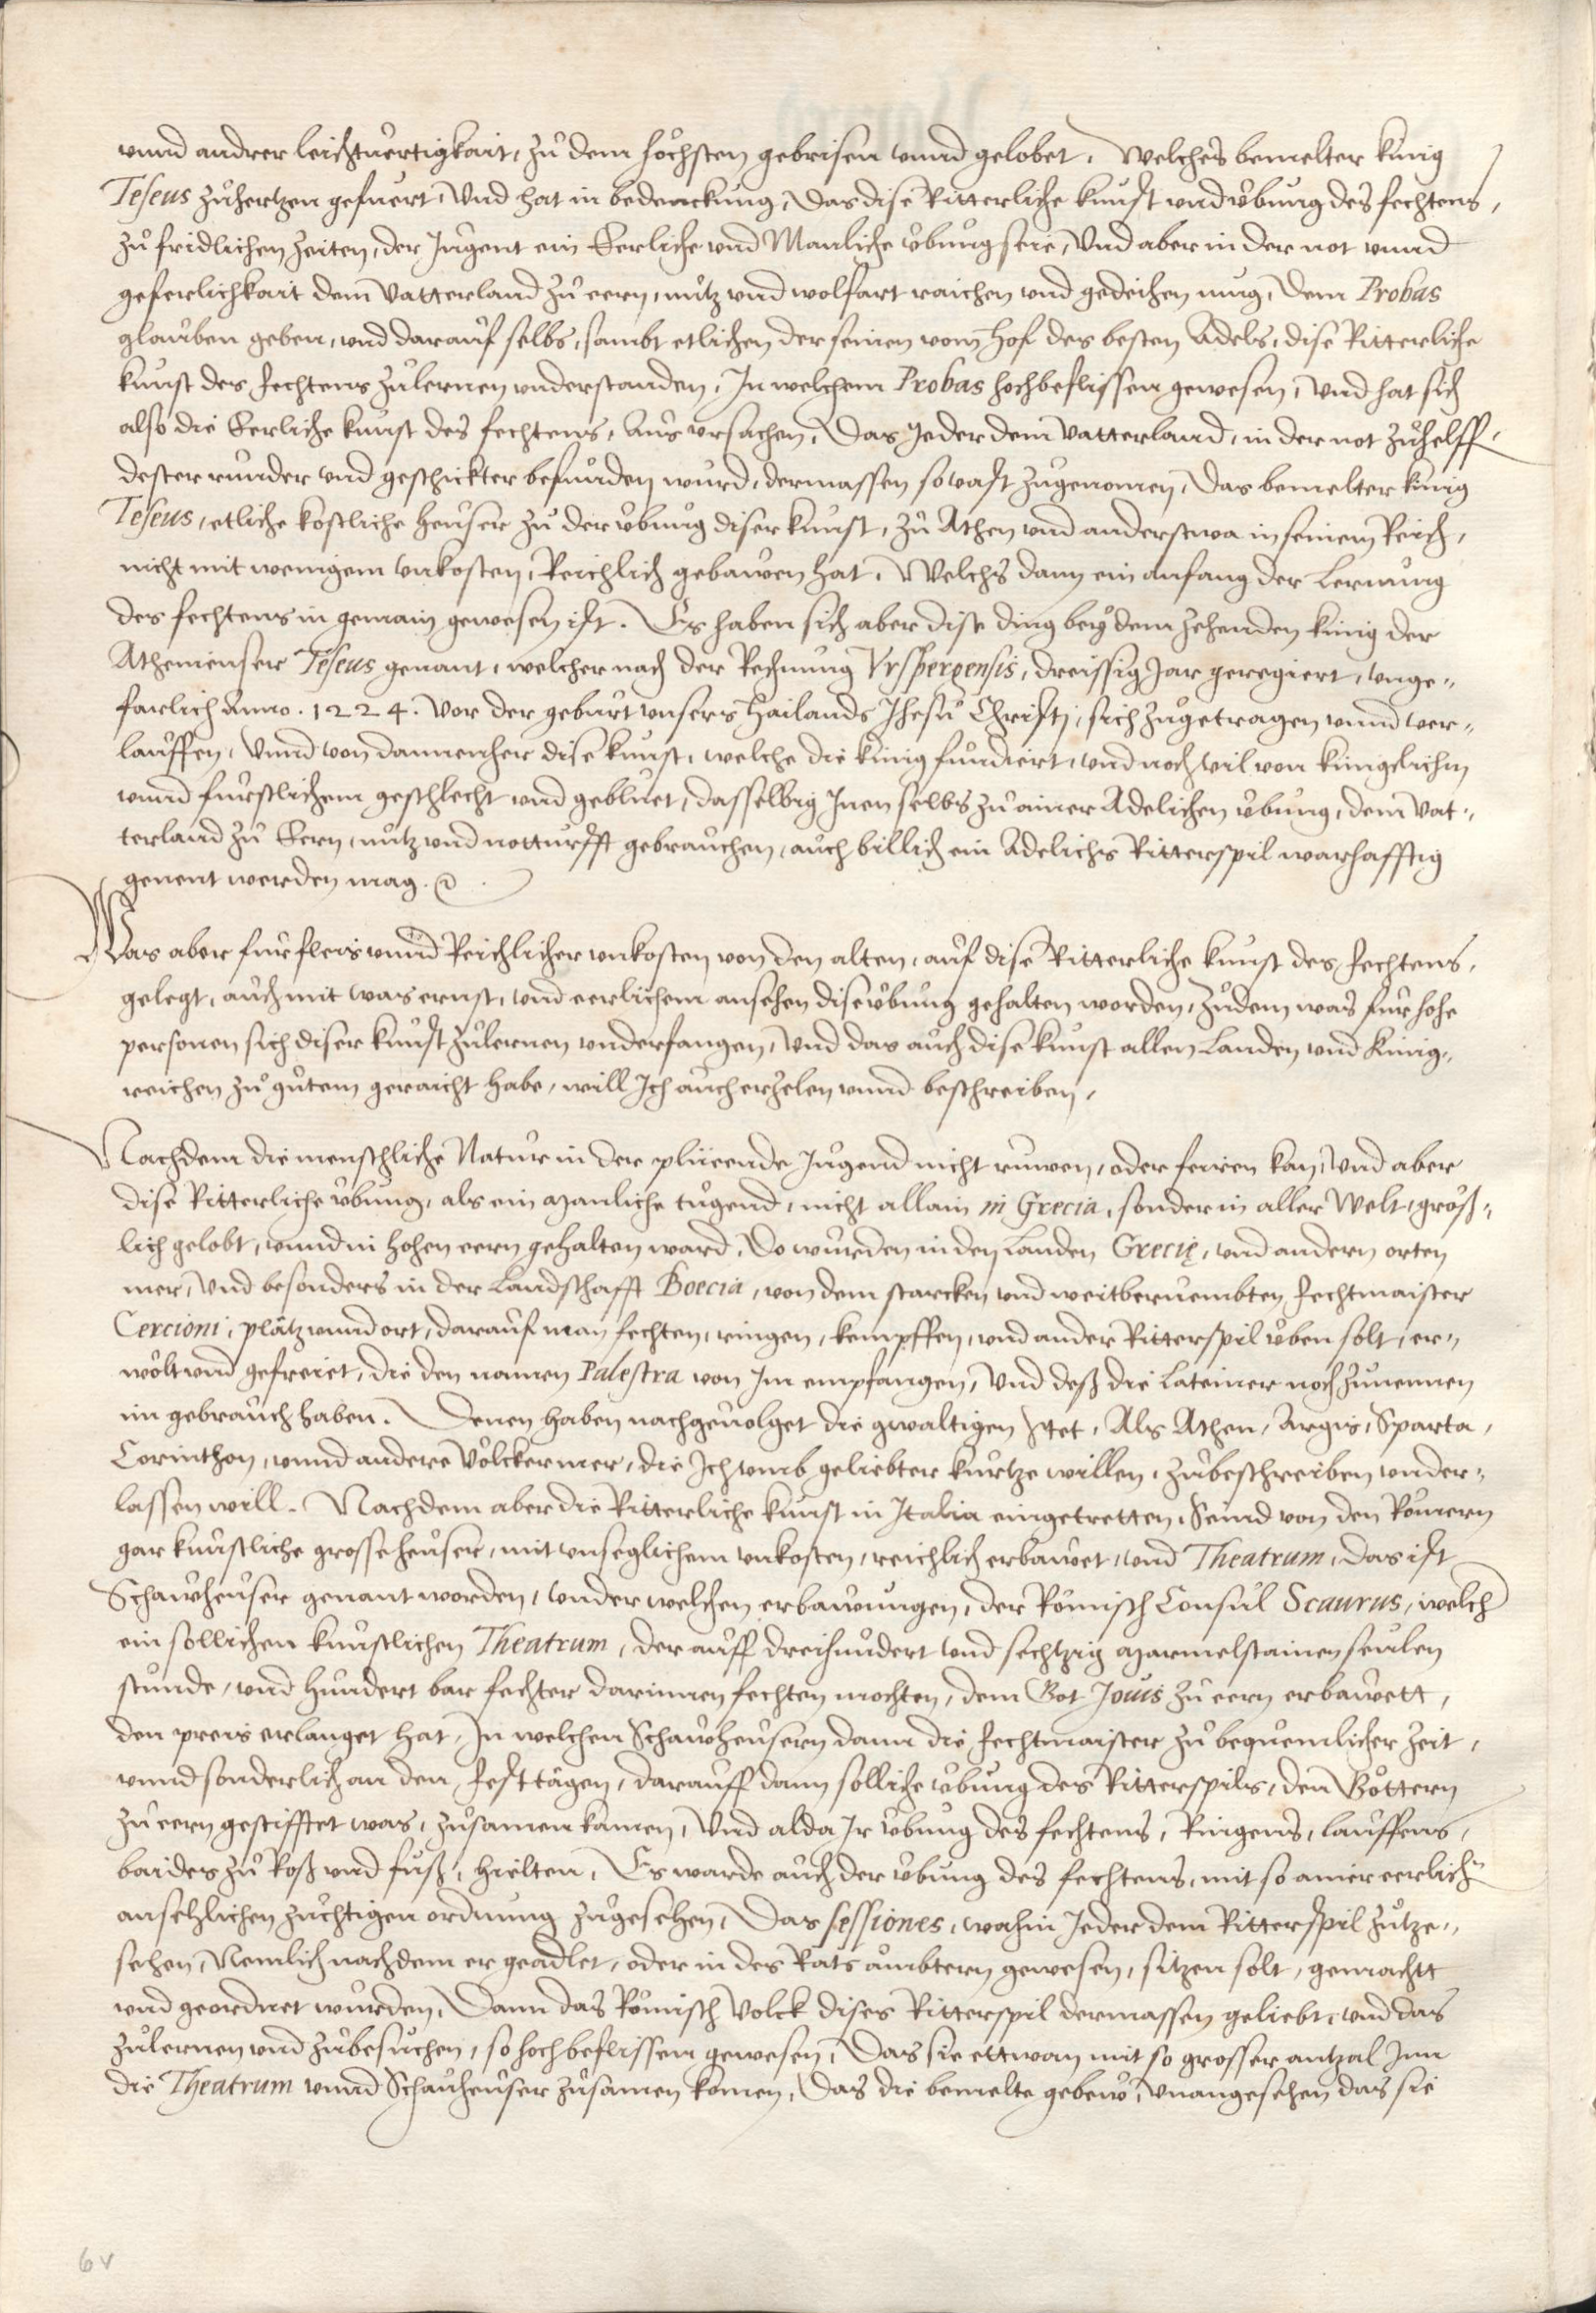 vnnd andrer leichtuertigkait, zů dem höchsten gebrisen vnnd gelobet. Welches bemelter künig
Teseus zůhertzen gefuert, Vnd hat in bedenckung, das dise Ritterliche kunst vnd übung des fechtens,
zů fridlichen zeiten, der Jugent ein Eerliche vnd Manliche übung seie, Vnd aber in der not vnnd
geferlichkait dem Vatterland zů eern, nutz vnd wolfart raichen vnd gedeihen mug, dem Probas
glauben geben, vnd darauf selbs, sambt etlichen der seinen vom Hof des besten Adels, dise Ritterliche
kunst des fechtens zulernen vnderstanden, In welchem Probas hochbeflissen gewesen, vnd hat sich
also die Eerliche kunst des fechtens, aus vrsachen, Das Jeder dem Vatterland, in der not zůhelff
dester runder vnd geschickter befunden wurd, dermassen so vast zůgenomen, Das bemelter künig
Teseus, etliche köstliche heuser zů der übung diser kunst, zů Athen vnd anderstwa in seinem Reich,
nicht mit wenigem vnkosten, Reichlich gebawen hat. Welchs dann ein anfang der Lernung
des fechtens in gemain gewesen ist. Es haben sich aber dise ding bey dem zehenden künig der
Athenienser Teseus genant, welcher nach der Rechnung Vrspergensis, dreissig Jar geregiert, vnge„
farlich Anno. 1224. vor der geburt vnsers Hailands Jhesu Christj, sich zůgetragen vnnd ver„
lauffen, Vnnd von dannenher dise kunst, welche die künig fundiert, vnd noch vil von künglichn
vnnd fürstlichem geschlecht vnd gebluet, dasselbig Inen selbs zů ainer Adelichen übung, dem Vat„
terland zů Eern, nutz vnd notturfft gebrauchen, auch billich ein Adelichs Ritterspil warhafftig
genent werden mag.
Was aber für fleis vnnd Reichlicher vnkosten von den alten, auf dise Ritterliche kunst des fechtens,
gelegt, auch mit was ernst, vnd eerlichem ansehen dise übung gehalten worden, zůdem was für hohe
personen sich diser kunst zůlernen vnderfangen, Vnd das auch dise kunst allen Landen vnd Künig„
reichen zů gůtem geraicht habe, will Ich auch erzelen vnnd beschreiben,
Nachdem die menschliche Natur in der plüeende Jugend nicht ruwen, oder feiren kan, vnd aber
dise Ritterliche übung, als ein manliche tugend, nicht allain in Grecia, sonder in aller Welt, gröss„
lich gelobt, vnnd in hohen eern gehalten ward, Do wurden in den landen Grecię, vnd andern orten
mer, Vnd besonders in der Landschafft Boecia, von dem starcken vnd weitberuembten fechtmaister
Cercioni, plätz vnnd ort, darauf man fechten, ringen, kempffen, vnd ander Ritterspil üben solt, er„
wölt vnd gefreiet, die den namen Palestra von Im empfangen, Vnd deß die Lateiner noch zunennen
im gebrauch haben. Denen haben nachgeuolget die gwaltigen stet, Als Athen, Argis, Sparta,
Corinthon, vnnd andere Völcker mer, die Ich vmb geliebter kurtze willen, zubeschreiben vnder„
lassen will. Nachdem aber die Ritterliche kunst in Italia eingetretten, Seind von den Römern
gar kunstliche grosse heuser, mit vnseglichem vnkosten, reichlich erbawet, vnd Theatrum, das ist
Schawheuser genant worden, vnder welchen erbawungen, der Römisch Consul Scaurus, welch
ein sollichen kunstlichen Theatrum, der auff dreihundert vnd sechtzig marmelstainen seulen
stunde, vnd hundert bar fechter darinnen fechten mochten, dem Got Jouis zů eern erbawett,
den preis erlanget hat, In welchen Schawheusern dann die fechtmaister zů bequemlicher zeit,
vnnd sonderlich an den festtägen, darauff dann solliche übung des Ritterspils, den Göttern
zů eern gestifftet was, zůsamen kamen, Vnd alda Ir übung des fechtens, Ringens, lauffens,
baides zů Roß vnd fuß, hielten, Es warde auch der übung des fechtens, mit so ainer eerlichn
ansehlichen züchtigen ordnung zůgesehen, Das sessiones, wahin Jeder dem Ritterspil zůtze„
sehen, Nemlich nachdem er geadlet, oder in des Rats ämbtern gewesen, sitzen solt, gemachtt
vnd geordnet wurden, Dann das Römisch Volck dises Ritterspil dermassen geliebt, vnd das
zůlernen vnd zůbesuchen, so hochbeflissen gewesen, Das sie ettwan mit so grosser antzal Inn
die Theatrum vnnd Schauheuser zůsamen komen, Das die bemelte gebew, vnangesehen das sie
6v